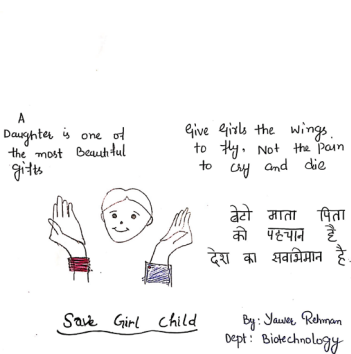 A
Daughter is one of
the most Beautiful
gifts
Give Girls the wings
to fly, Not the Pain
to cry and die
बेटी माता पिता
की पहचान है
देश का सवाभिमान है.
Save Girl Child
By: Yawer Rehman
Dept: Biotechnology